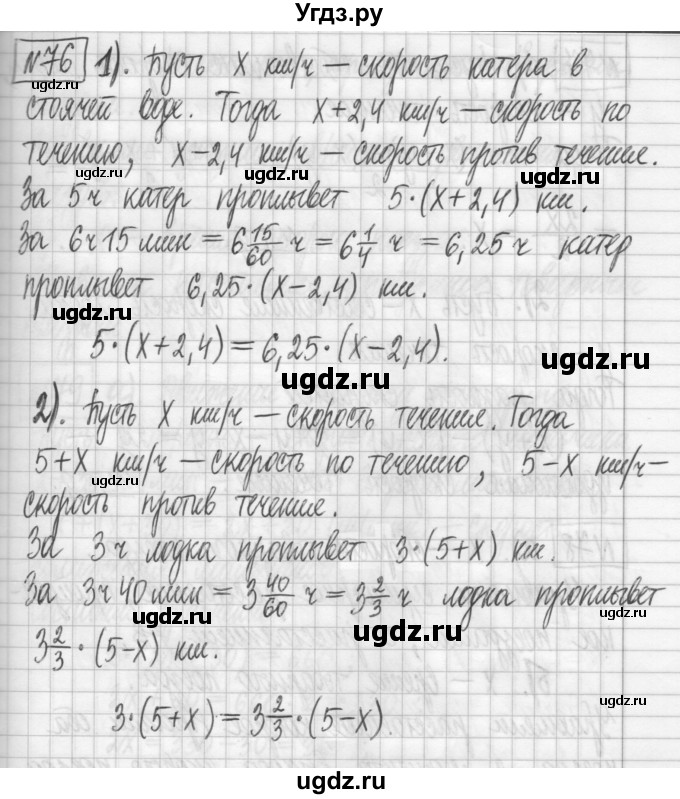 Угдз.ру
№76 1). Пусть x км/ч — скорость катера в
стоячей воде. Тогда x+2,4 км/ч — скорость по
течению, x−2,4 км/ч — скорость против течения.
ugdz.ru ugdz.ru
За 5ч катер проплывет 5·(x+2,4) км.
За 6ч15мин = 6 15/60 ч = 6 1/4 ч = 6,25ч катер
проплывет 6,25·(x−2,4) км.
ugdz.ru ugdz.ru
5·(x+2,4)=6,25·(x−2,4).
ugdz.ru
2). Пусть x км/ч — скорость течения. Тогда
5+x км/ч — скорость по течению, 5−x км/ч —
ugdz.ru
скорость против течения.
ugdz.ru
За 3ч лодка проплывет 3·(5+x) км.
За 3ч40мин = 3 40/60 ч = 3 2/3 ч лодка проплывет
ugdz.ru ugdz.ru
3 2/3 · (5−x) км.
ugdz.ru
3·(5+x)=3 2/3·(5−x).
ugdz.ru
ugdz.ru